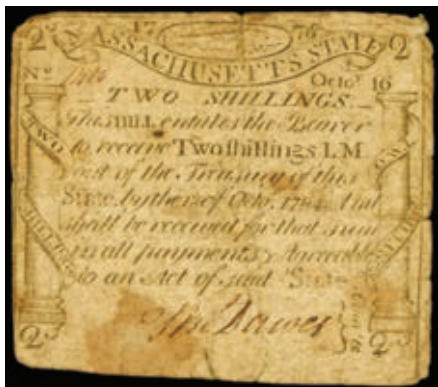 2 17 76 2
MASSACHUSETTS STATE
No
Octor 16
TWO SHILLINGS.
This BILL entitles the Bearer
to receive Two shillings L.M.
out of the Treasury of this
State, by the of Octr. 1784. And
shall be received for that sum
in all payments, Agreeable
to an Act of said State
Dawes
TWO
2 2